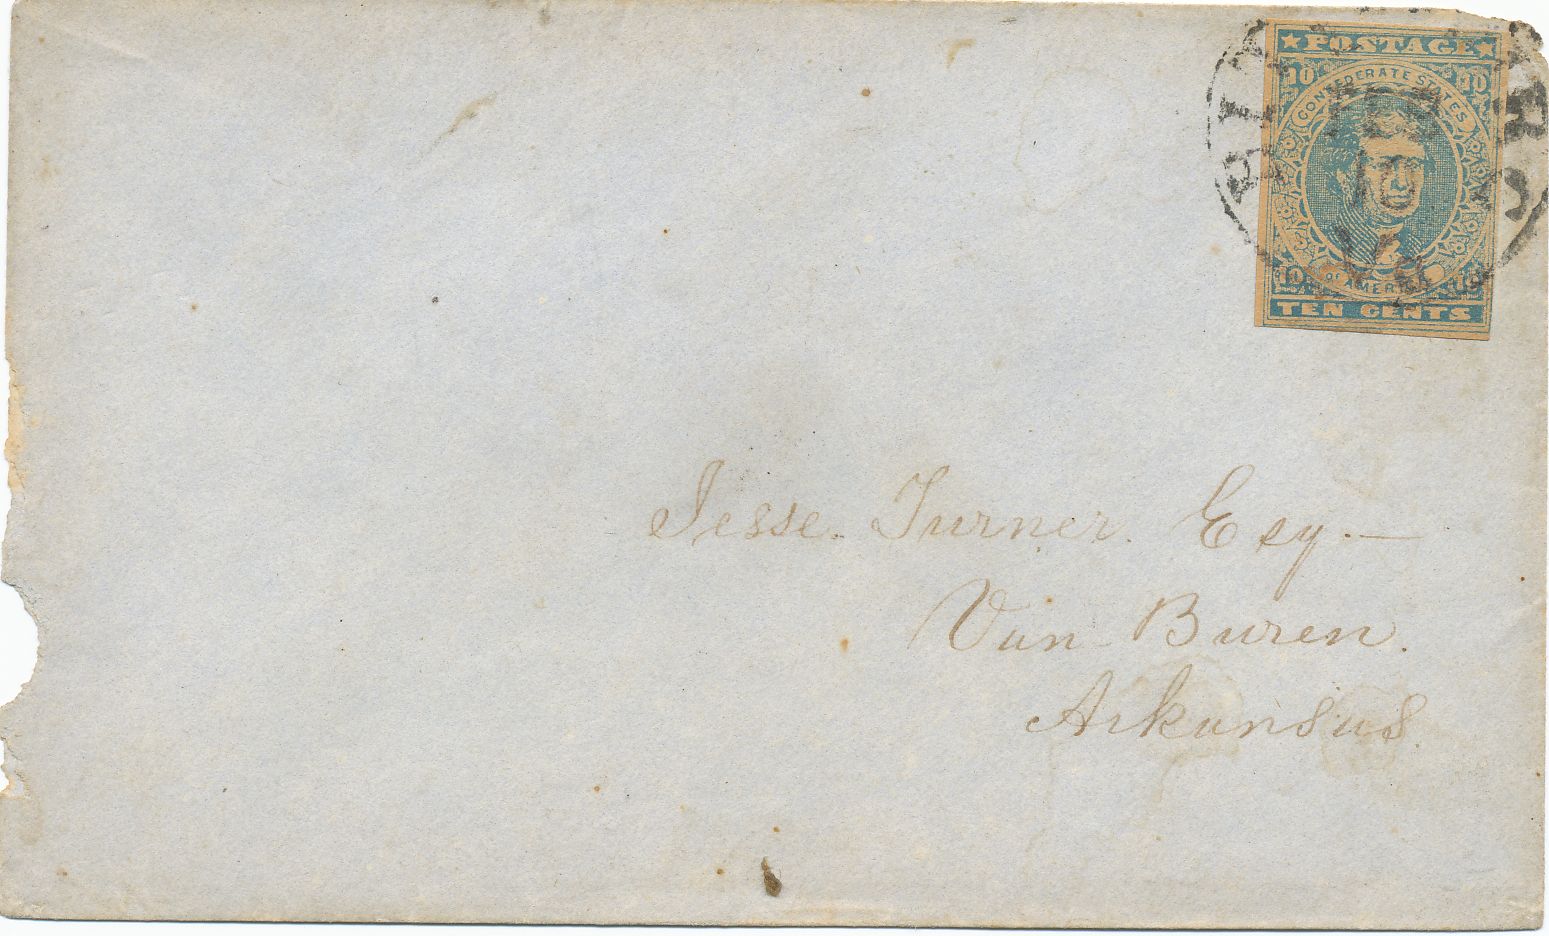 ★POSTAGE★
10 10
CONFEDERATE STATES
OF AMERICA
10 10
TEN CENTS
FEB
10
Jesse. Turner. Esq.—
Van-Buren.
Arkansas